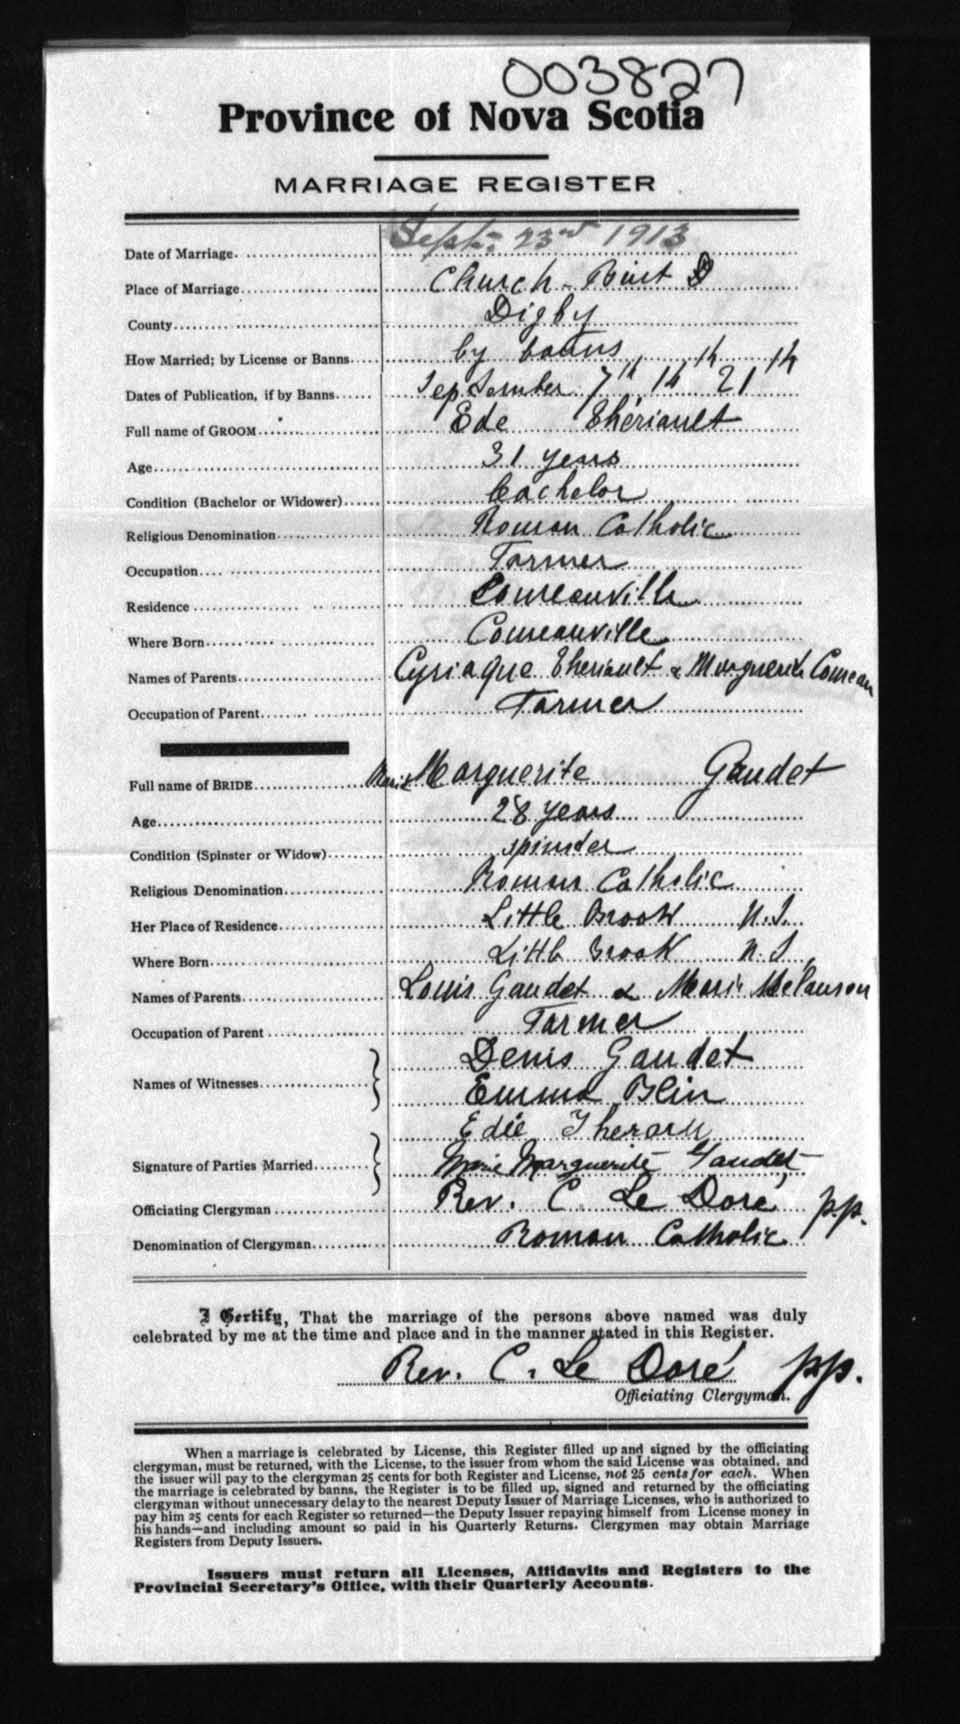 003827
Province of Nova Scotia
MARRIAGE REGISTER
Date of Marriage. Sept. 23rd 1913
Place of Marriage Church-Point D
County Digby
How Married; by License or Banns by banns
Dates of Publication, if by Banns September 7th 14th 21th
Full name of GROOM Ede Thériault
Age 31 years
Condition (Bachelor or Widower) bachelor
Religious Denomination Roman Catholic
Occupation Farmer
Residence Comeauville
Where Born Comeauville
Names of Parents Cyriaque Theriault & Marguerite Comeau
Occupation of Parent Farmer
Full name of BRIDE Marie Marguerite Gaudet
Age 28 years
Condition (Spinster or Widow) spinster
Religious Denomination Roman Catholic
Her Place of Residence Little Brook N.S.
Where Born Little Brook N.S.
Names of Parents Louis Gaudet & Marie Melanson
Occupation of Parent Farmer
Names of Witnesses Denis Gaudet
Emma Blin
Edie
Signature of Parties Married Marie Marguerite Gaudet
Officiating Clergyman Rev. C. Le Doré, p.p.
Denomination of Clergyman Roman Catholic
I Certify, That the marriage of the persons above named was duly
celebrated by me at the time and place and in the manner stated in this Register.
Rev. C. Le Doré p.p.
Officiating Clergyman.
When a marriage is celebrated by License, this Register filled up and signed by the officiating
clergyman, must be returned, with the License, to the issuer from whom the said License was obtained, and
the issuer will pay to the clergyman 25 cents for both Register and License, not 25 cents for each. When
the marriage is celebrated by banns, the Register is to be filled up, signed and returned by the officiating
clergyman without unnecessary delay to the nearest Deputy Issuer of Marriage Licenses, who is authorized to
pay him 25 cents for each Register so returned—the Deputy Issuer repaying himself from License money in
his hands—and including amount so paid in his Quarterly Returns. Clergymen may obtain Marriage
Registers from Deputy Issuers.
Issuers must return all Licenses, Affidavits and Registers to the
Provincial Secretary's Office, with their Quarterly Accounts.